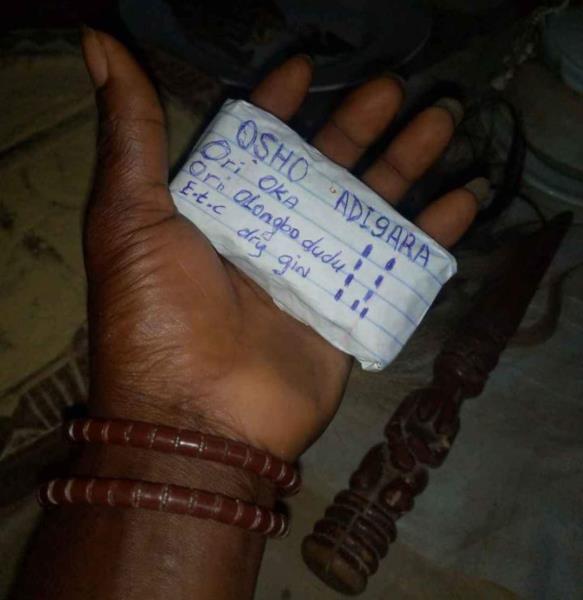 OSHO ADIGARA
Ori OKA
Ori OLongbo dudu
E.t.c dry gin